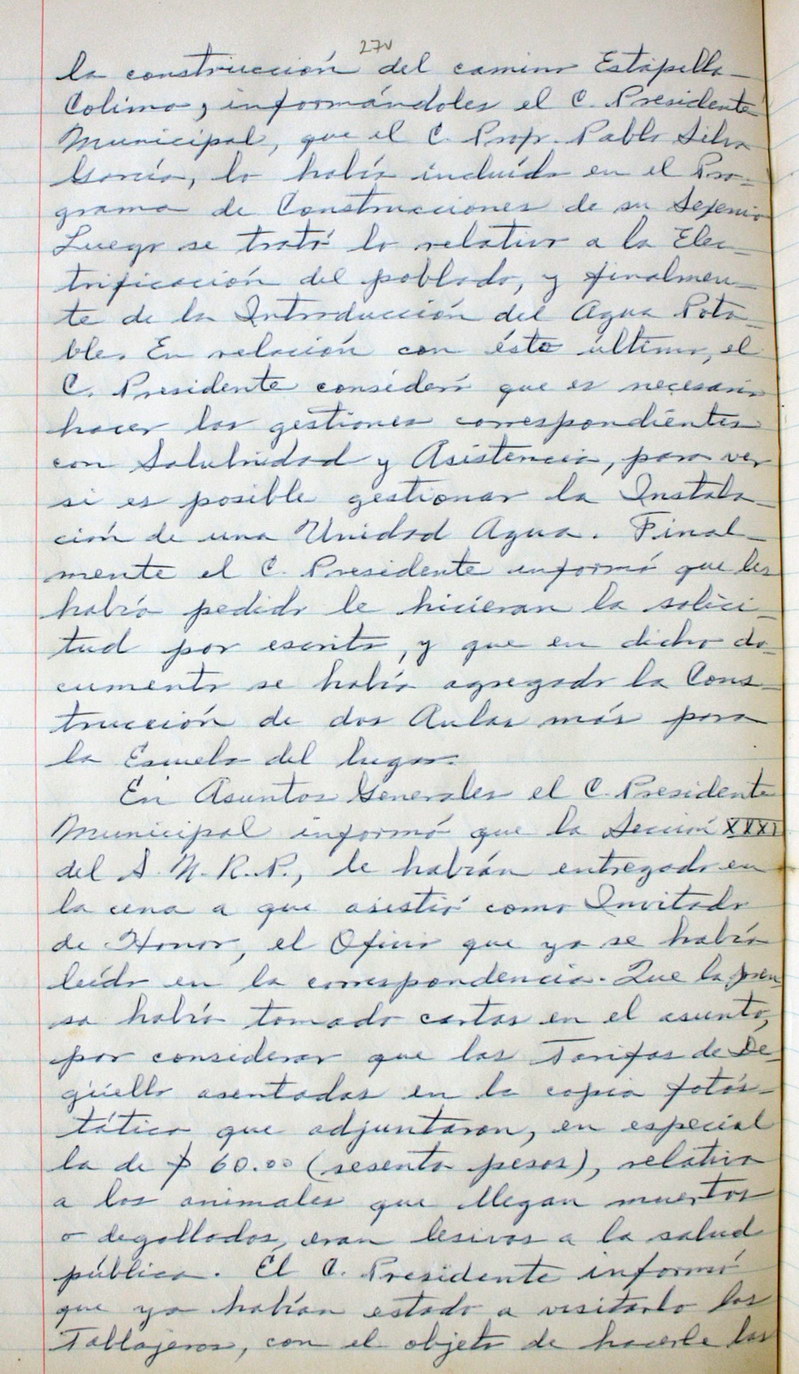 27v
la construcción del camino Estapilla-
Colima, informándoles el C. Presidente
Municipal, que el C. Prof. Pablo Silva
García, lo había incluído en el Pro-
grama de Construcciones de su Sexenio
Luego se trató lo relativo a la Elec-
trificación del poblado, y finalmen-
te de la Introducción del Agua Pota-
ble. En relación con ésto último, el
C. Presidente consideró que es necesario
hacer las gestiones correspondientes
con Salubridad y Asistencia, para ver
si es posible gestionar la Instala-
ción de una Unidad Agua. Final-
mente el C. Presidente informó que les
había pedido le hicieran la solici-
tud por escrito, y que en dicho do-
cumento se había agregado la Cons-
trucción de dos Aulas más para
la Escuela del lugar.
En Asuntos Generales el C. Presidente
Municipal informó que la Sección XXXI
del S. N. R. P., le habían entregado en
la cena a que asistió como Invitado
de Honor, el Oficio que ya se había
leído en la correspondencia. Que la pren-
sa había tomado cartas en el asunto,
por considerar que las Tarifas de De-
güello asentadas en la copia fotos-
tática que adjuntaron, en especial
la de $ 60.00 (sesenta pesos), relativa
a los animales que llegan muertos
o degollados, eran lesivas a la salud
pública. El C. Presidente informó
que ya habían estado a visitarlo los
Tablajeros, con el objeto de hacerle las